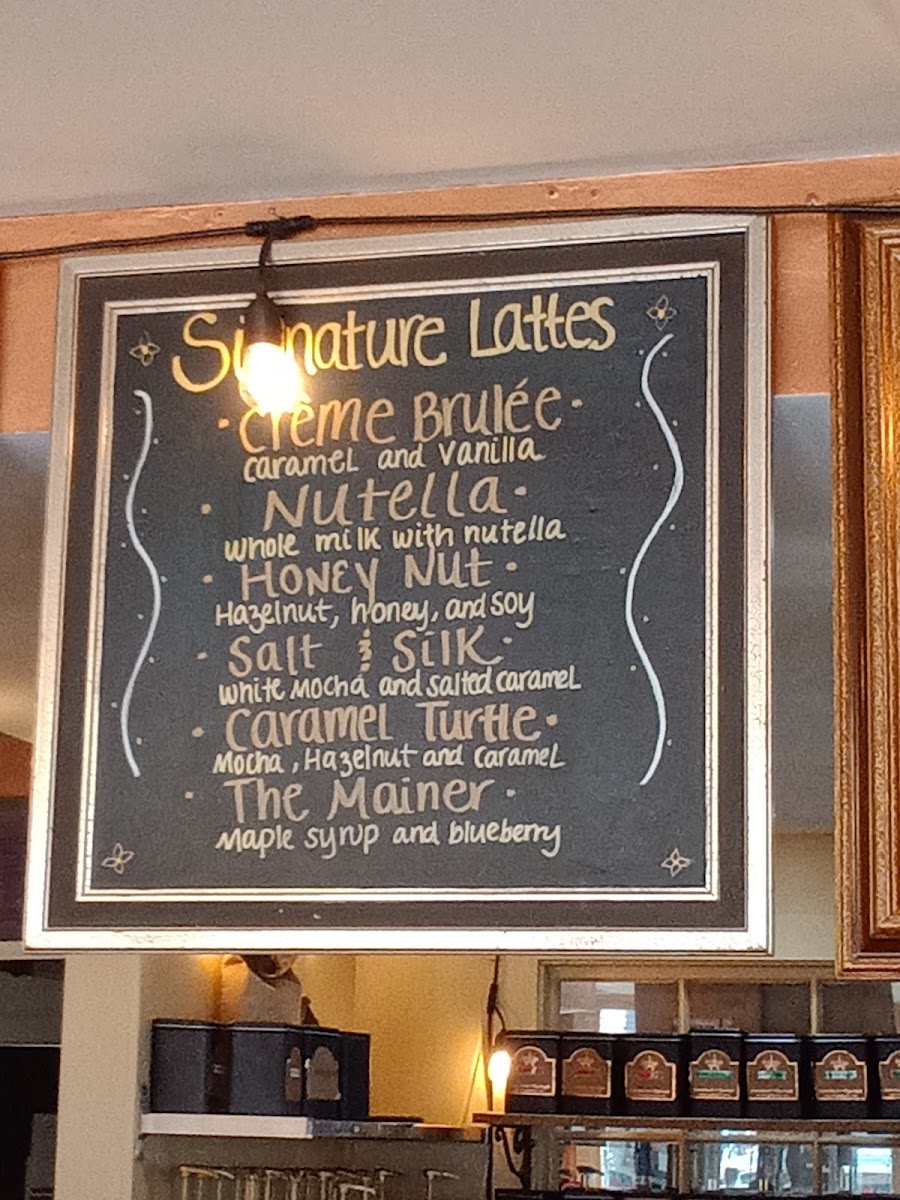 Signature Lattes
· Crème Brulée ·
caramel and vanilla
· Nutella ·
whole milk with nutella
· Honey Nut ·
Hazelnut, honey, and soy
· Salt & Silk ·
white mocha and salted caramel
· Caramel Turtle ·
Mocha, Hazelnut and caramel
· The Mainer ·
Maple syrup and blueberry